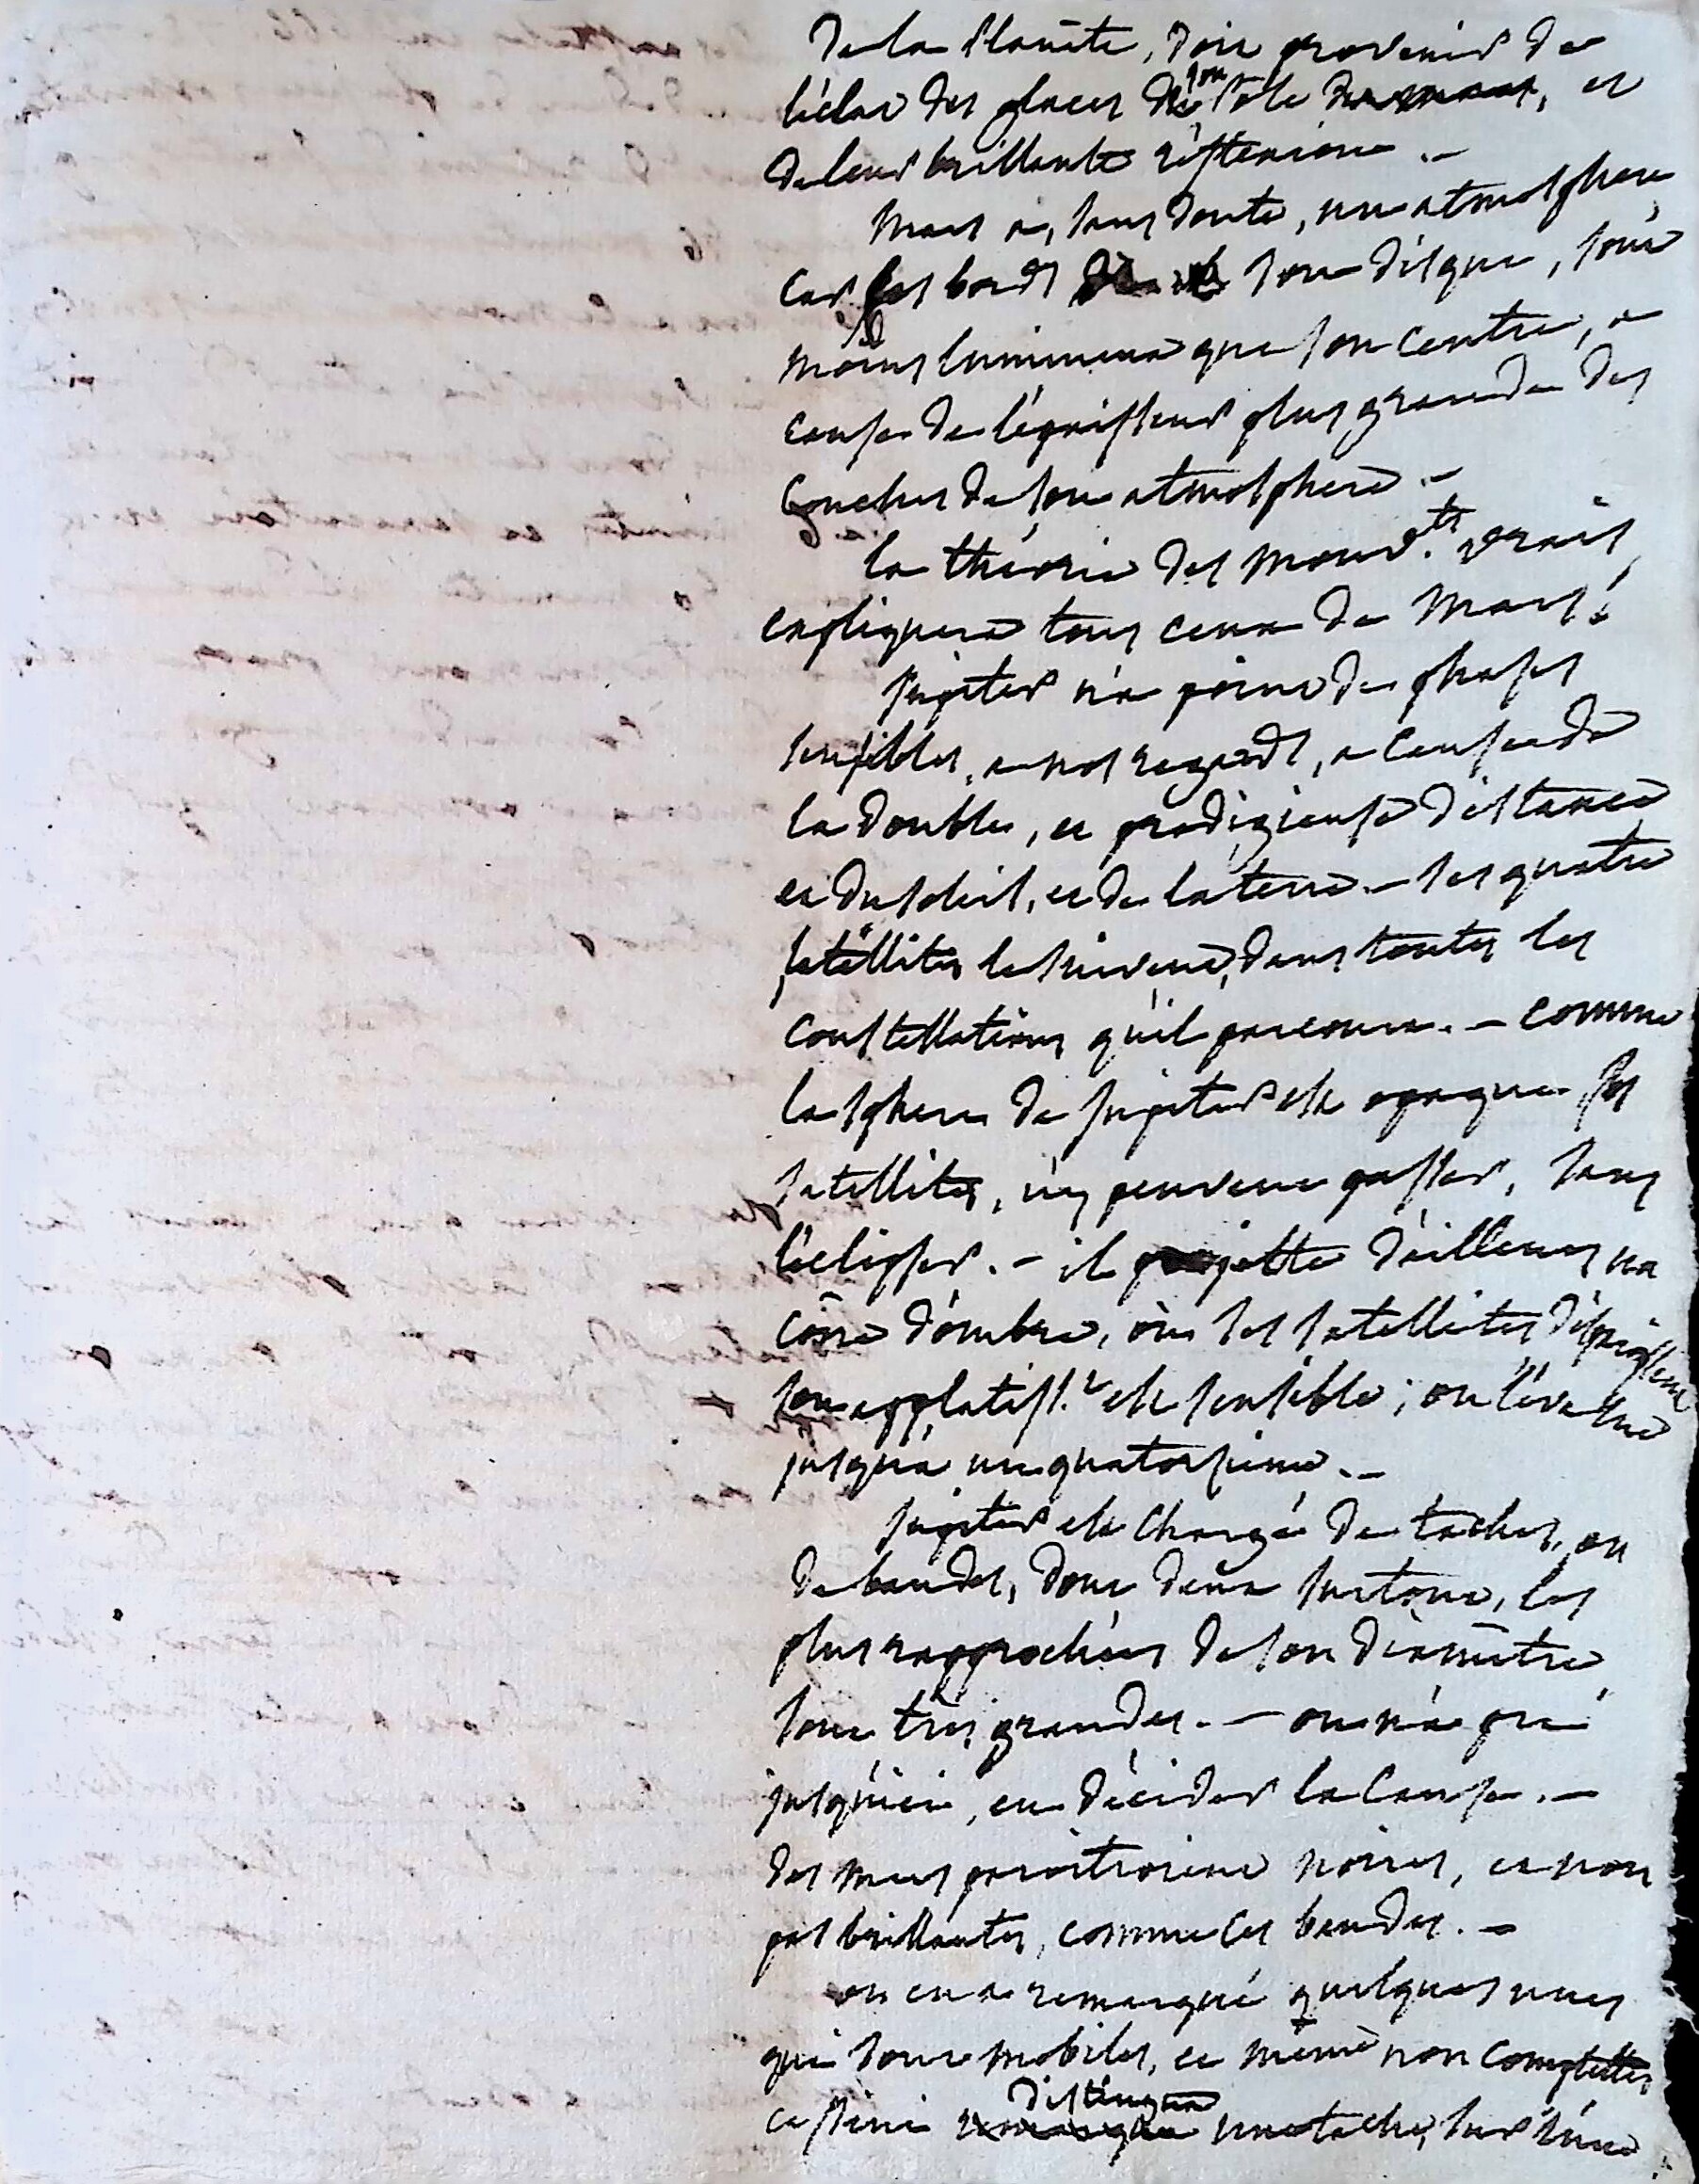 de la planète, doit provenir de
l'éclat des glaces de son Pole et
de leur brillante réflexion. -
Mars a, sans doute, une atmosphere
car les bords de son disque, sont
moins lumineux que son centre, a
cause de l'épaisseur plus grande des
couches de son atmosphere. -
la théorie des mouv.ts vrais
expliquera tous ceux de Mars.
Jupiter n'a point de phases
sensibles, a nos regards, a cause de
la double, et prodigieuse distance
et du soleil, et de la terre. - ses quatre
satéllites le suivent, dans toutes les
constellations qu'il parcourt. - comme
la sphere de Jupiter est opaque ses
satellites, n'y peuvent passer, sans
s'éclipser. - il projette d'ailleurs un
cône d'ombre, où ses satellites disparaissent
son applatiss.t est sensible ; on l'évalue
jusqu'a un quatorzieme. -
Jupiter est chargé de taches, ou
de bandes, dont deux surtout, les
plus rapprochées de son diamètre
sont très grandes. - on n'a pu
jusqu'ici, en décider la cause. -
des mers paroitroient noires, et non
pas brillantes, comme ces bandes. -
on en a remarqué quelques unes
qui sont mobiles, et même non complettes
cassini distingua une tache, sur l'une